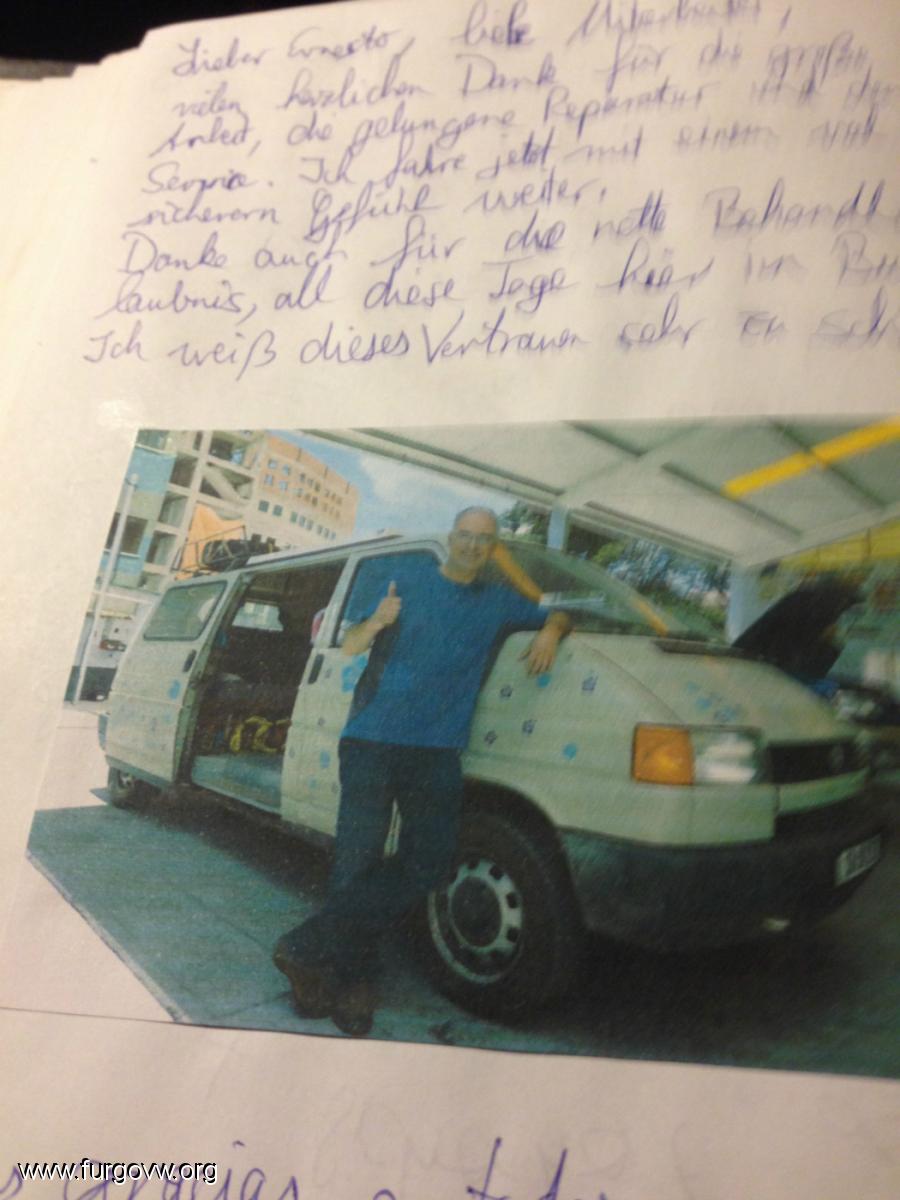 Lieber Ernesto, liebe Mitarbeiter,
vielen herzlichen Dank für die große
Arbeit, die gelungene Reparatur und den
Service. Ich fahre jetzt mit einem
sicheren Gefühl weiter.
Danke auch für die nette
laubnis, all diese Tage hier im
Ich weiß dieses Vertrauen sehr zu
Gracias a
www.furgovw.org